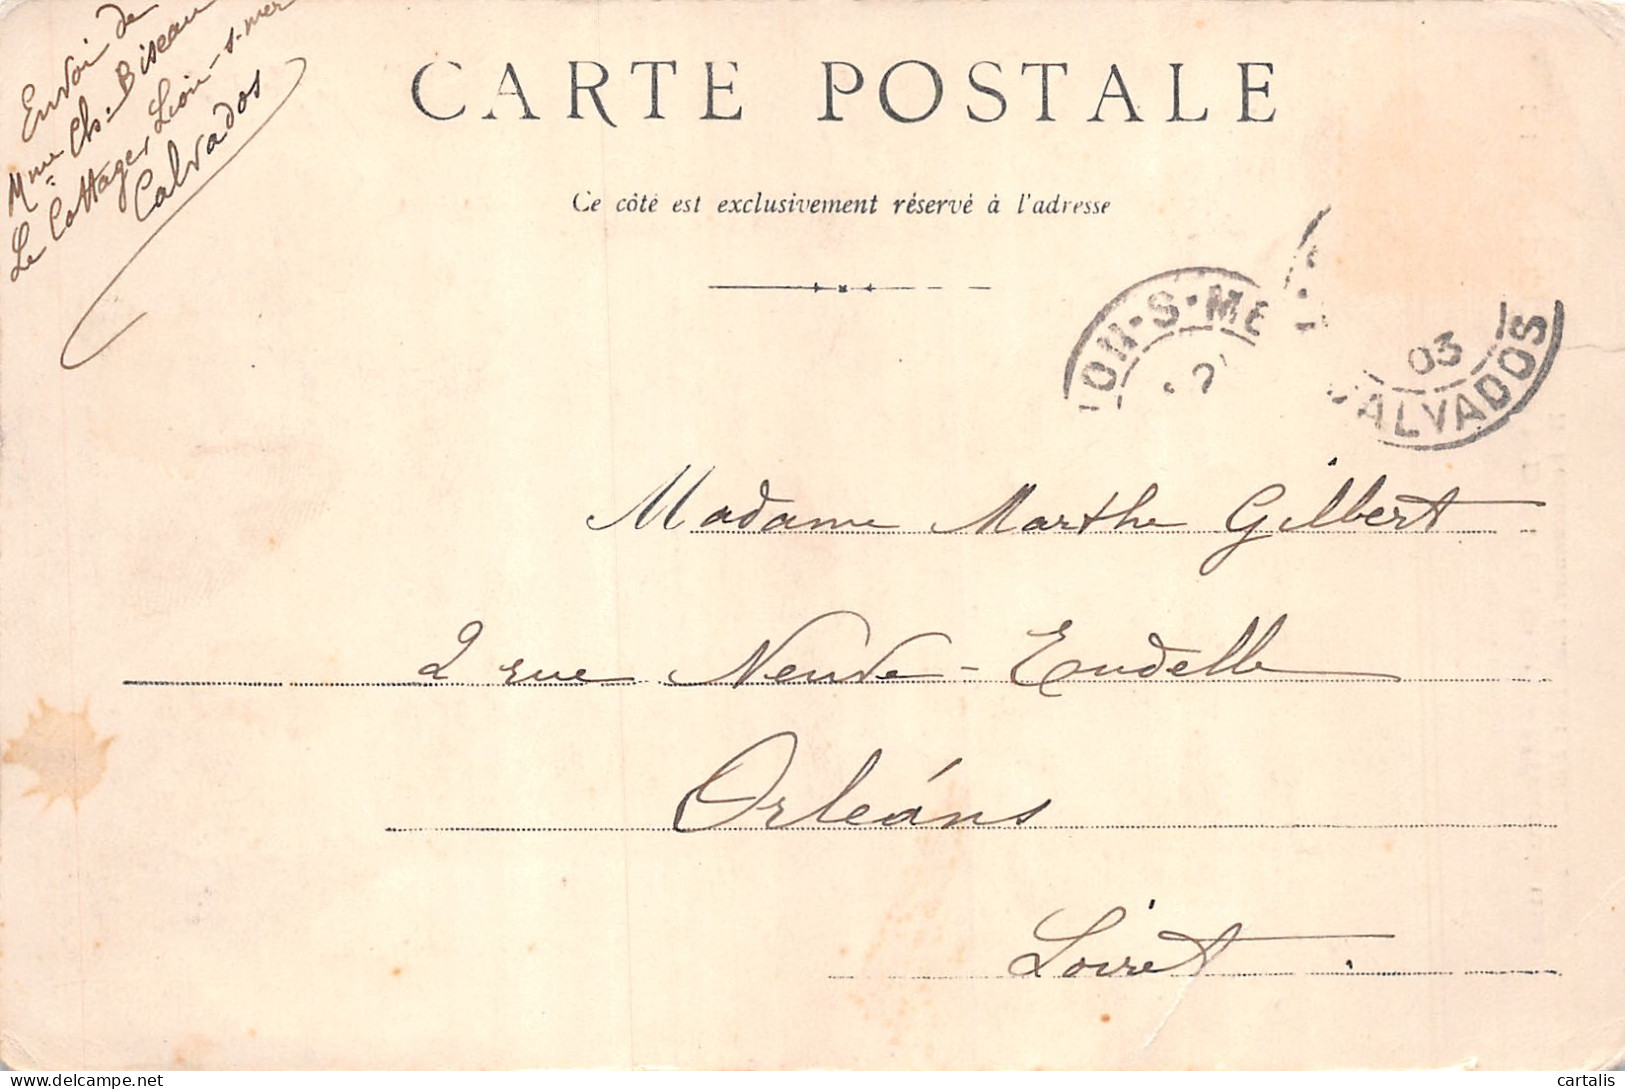 Envoi de
Mme Ch. Biseau
Le Cottage, Lion-s-mer
Calvados
CARTE POSTALE
Ce côté est exclusivement réservé à l'adresse
ION-S-ME
03
CALVADOS
Madame Marthe Gilbert
2 rue Neuve-Tudelle
Orléáns
Loiret.
cartalis